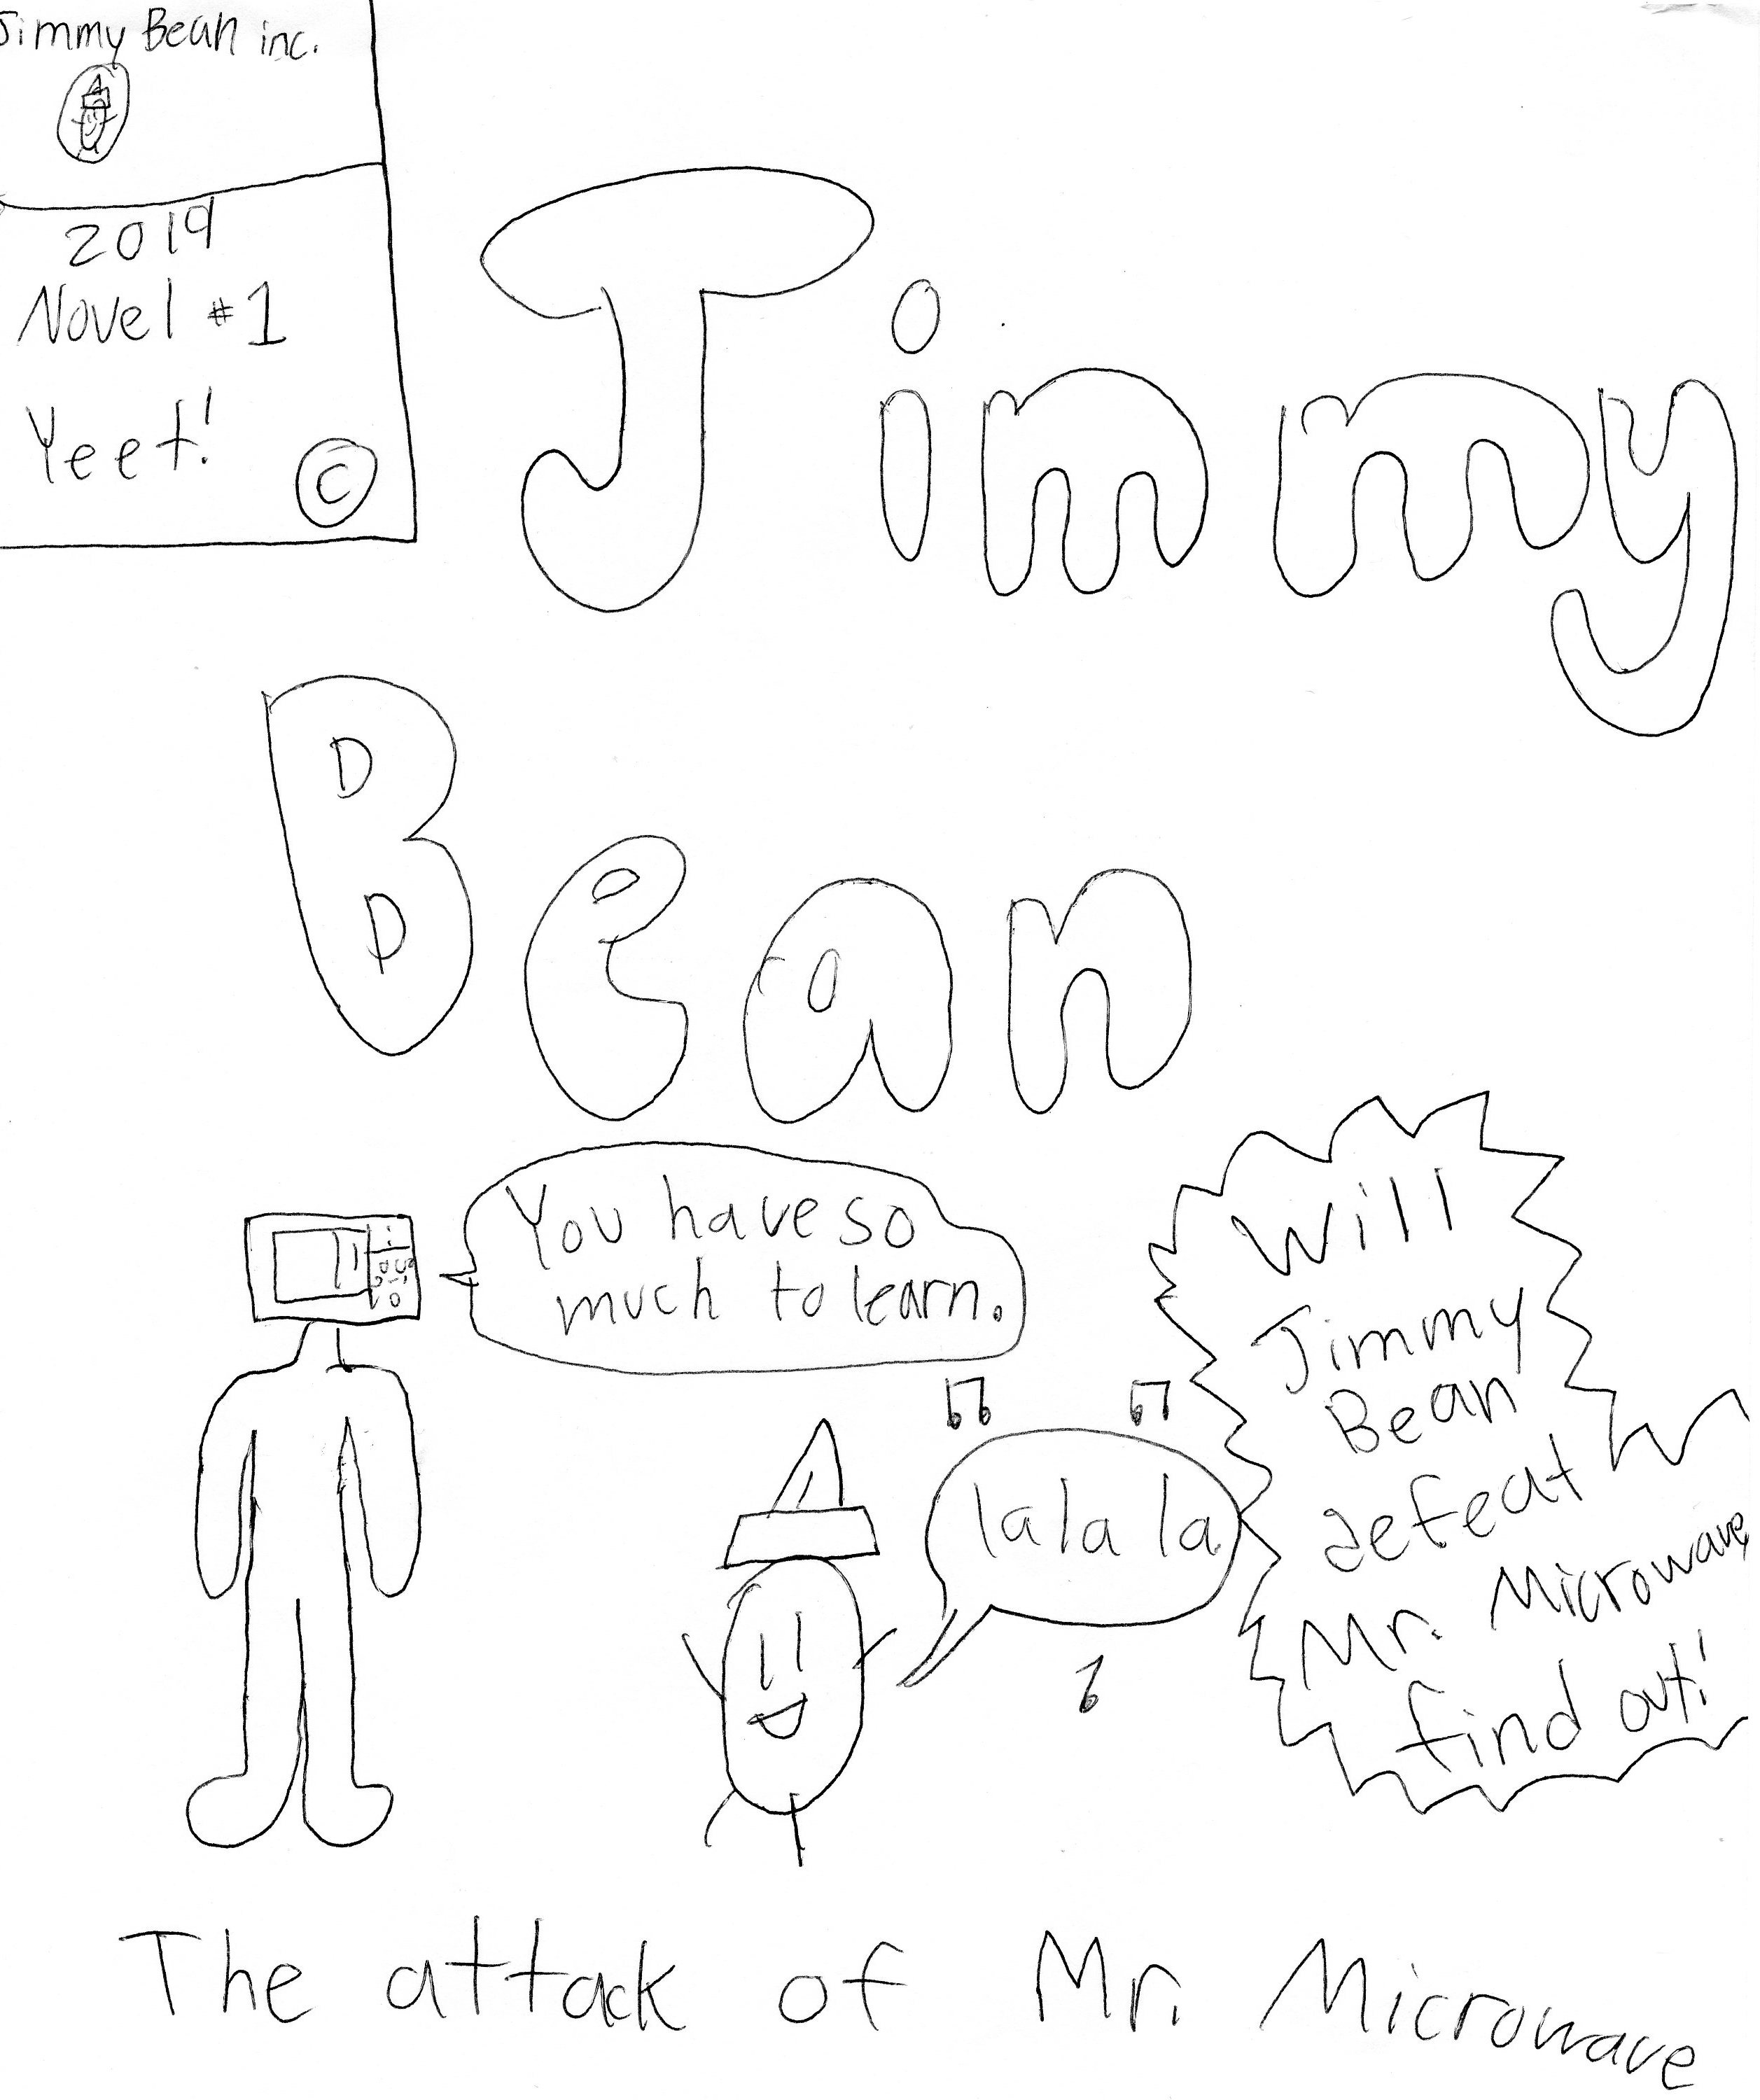 Jimmy Bean inc.
2019
Novel #1
Yeet!
©
Jimmy
Bean
You have so
much to learn.
la la la
Will
Jimmy
Bean
defeat
Mr. Microwave
find out!
The attack of Mr. Microwave